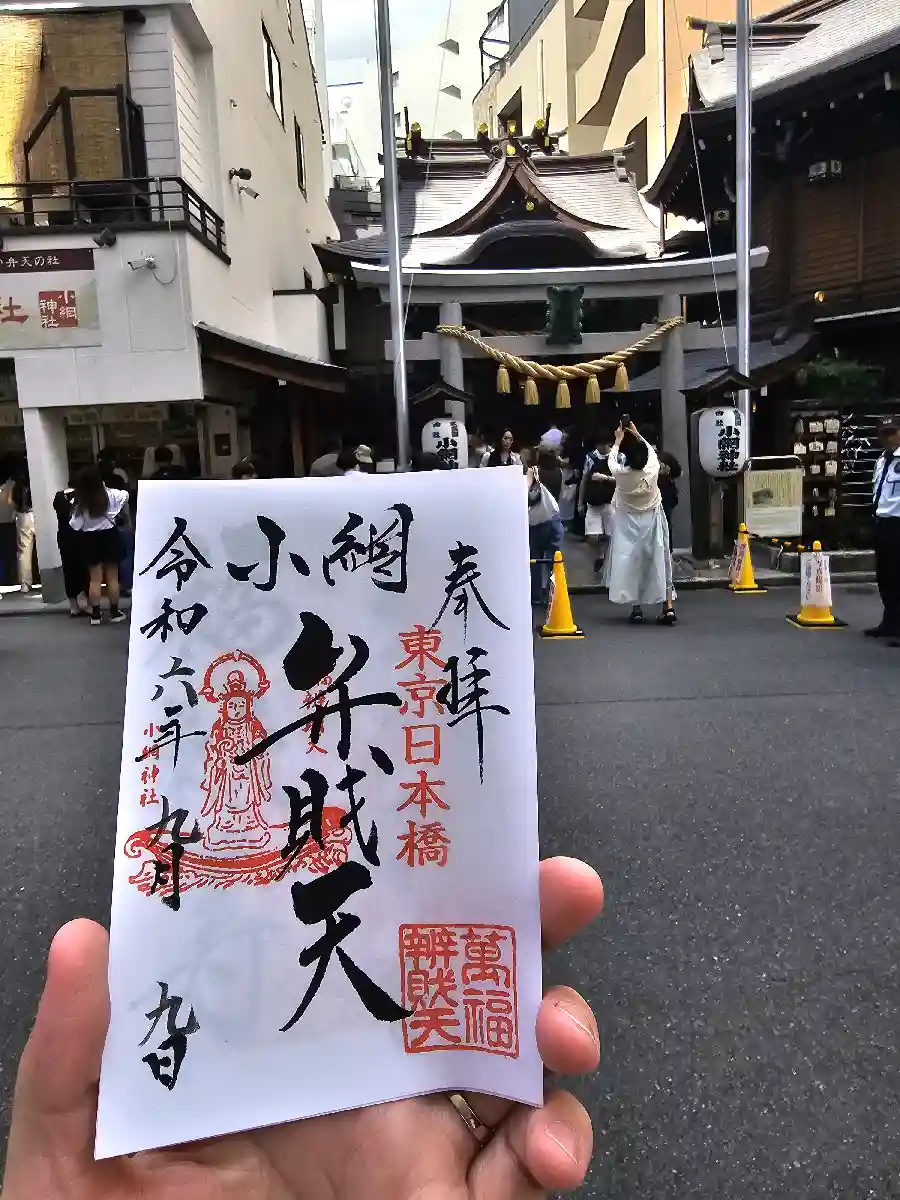 弁天の社
社
小網
神社
小網神社
奉拝
東京日本橋
小網
弁財天
令和六年九月九日
小網神社
萬福
辨財天